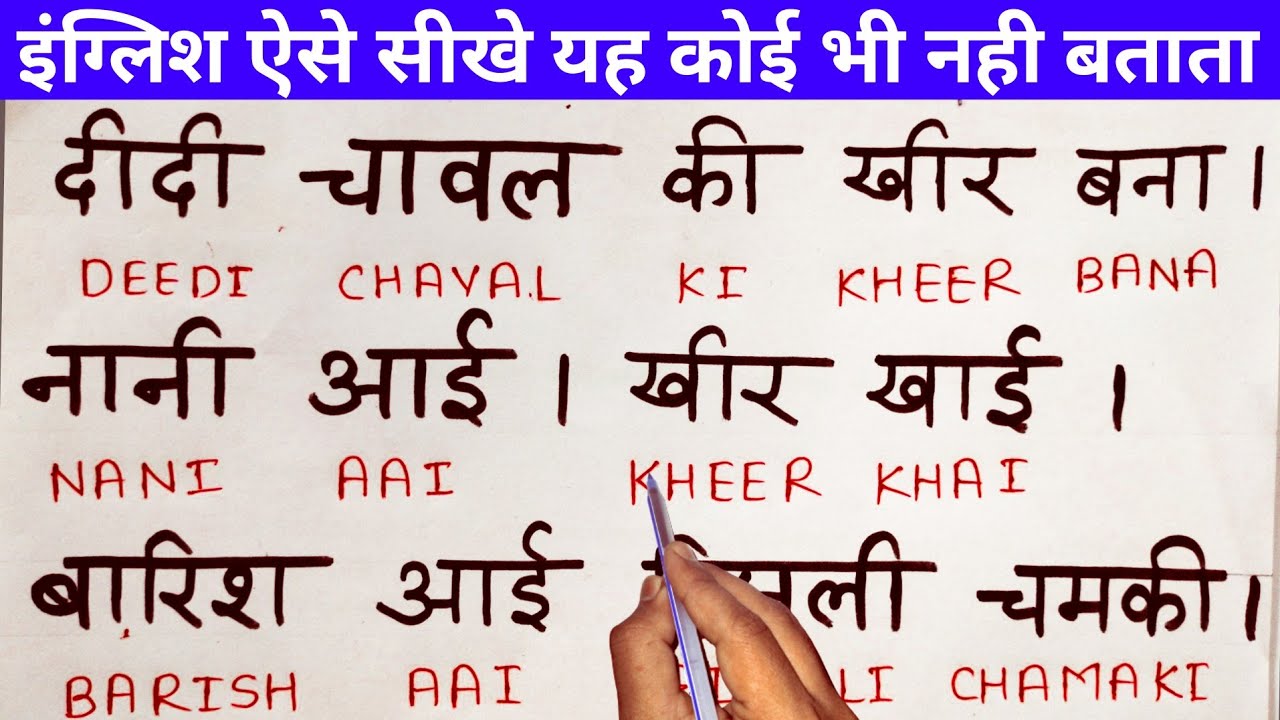 इंग्लिश ऐसे सीखे यह कोई भी नही बताता
दीदी चावल की खीर बना।
DEEDI CHAVAL KI KHEER BANA
नानी आई। खीर खाई।
NANI AAI KHEER KHAI
बारिश आई चमकी।
BARISH AAI CHAMAKI